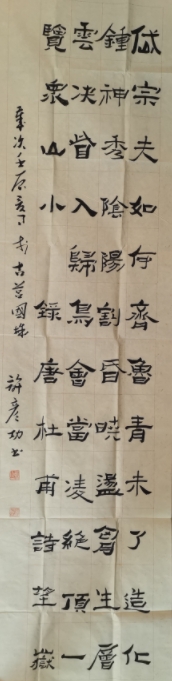 岱宗夫如何齊魯青未了造化
鍾神秀陰陽割昏曉盪胷生層
雲决眥入歸鳥會當凌絕頂一
覽眾山小 錄唐杜甫詩望嶽
次壬 古莒國 許彥 书